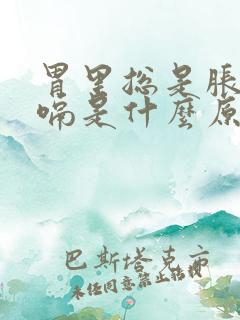 胃里总是胀
嗝是什麼原
巴斯塔克亦
未经同意禁止转载